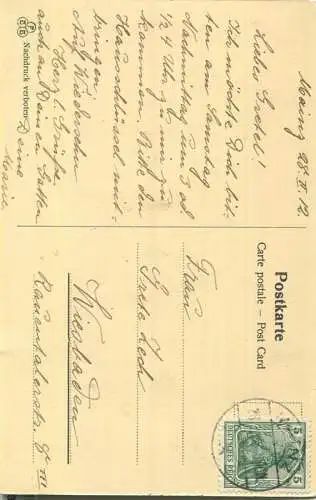 Mainz 25. II. 12.
Liebes Gretel!
Ich möchte Dich bit-
ten am Samstag
Nachmittag um 3 od.
1/2 4 Uhr zu mir zu
kommen. Bitte den
Hausschlüssel mit-
bringen.
Auf Wiedersehn
Herzl. Grüße
auch an Deinen Gatten
Deine
Marie.
Nachdruck verboten
Postkarte
Carte postale — Post Card
Frau
Grete
Wiesbaden
Rauenthalerstr. 8 III
5 5
DEUTSCHES REICH